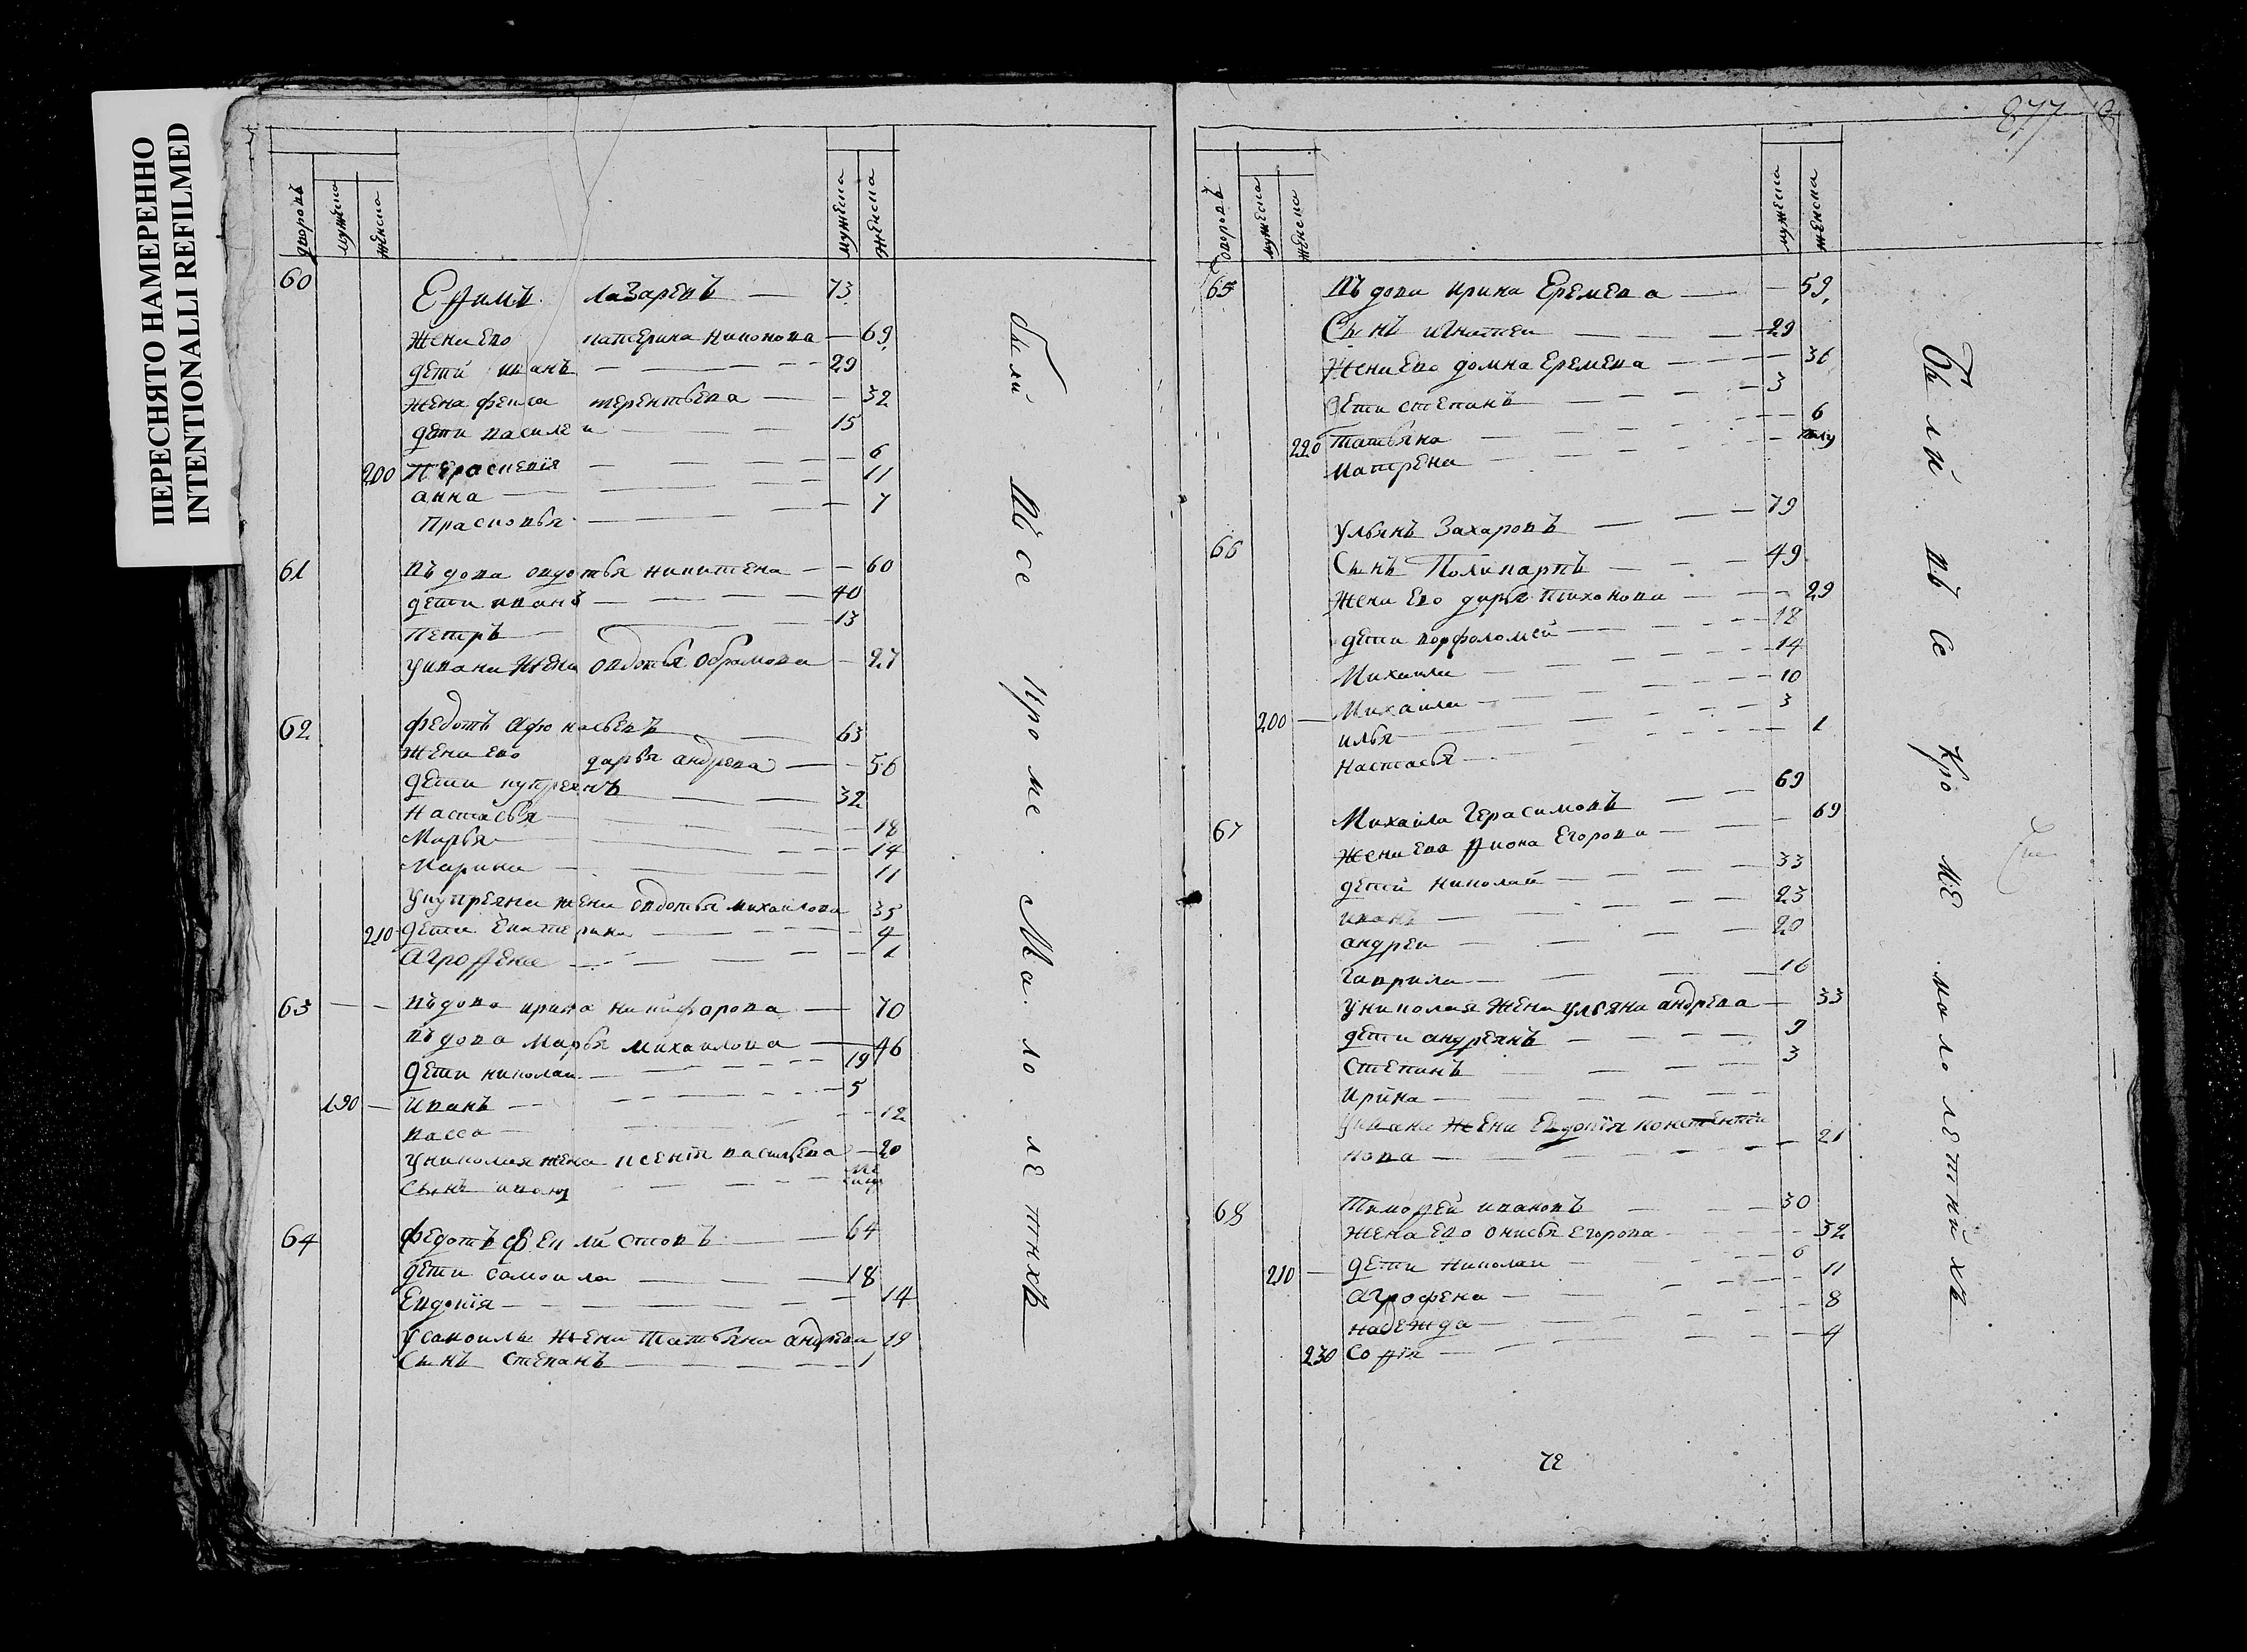 ПЕРЕСНЯТО НАМЕРЕННО
INTENTIONALLI REFILMED
дворовъ
мужеска
женска
мужеска
женска
60 Ефимъ лазаревъ — 73
жена Ево катерина никонова — 69
дети иванъ — 29
жена фекла терентьева — 32
дети василеи — 15
200 — 6
анна — 11
Прасковья — 7
61 въдова овдотья никитена — 60
дети иванъ — 40
Петръ — 13
уивана жена овдотья обрамова — 27
62 федотъ афонасьевъ — 63
жена ево дарья андрева — 56
дети купреянъ — 32
Настасья — 18
Марья — 14
Марина — 11
укупреяна жена овдотья михаилова 35
210 дети Екатерина — 4
агрофена — 1
63 — въдова ирина никифорова — 70
въдова марья михаилова — 46
дети николаи — 19
190 — Иванъ — 5
васса — 12
униколая жена ксенiя васильева — 20
сынъ иванъ —
64 федотъ февлистовъ — 64
дети самоила — 18
Евдокiя — 14
усамоила жена татьяна андрева 19
Сынъ степанъ — 1
были въсе кроме малолетнихъ
877
дворовъ
мужеска
женска
мужеска
женска
65 въдова ирина Еремева — 59
Сынъ игнатеи — 29
жена Ево домна Еремева — 36
дети степанъ — 3
220 татьяна — 6
матрена —
66 ульянъ Захаровъ — 79
Сынъ Поликарпъ — 49
жена Ево дарья тихонова — 29
дети ворфоломей — 18
Михаила — 14
Михаила — 10
200 — илья — 3
настасья — 1
67 Михаила Герасимовъ — 69
жена Ево фиона Егорова — 69
дети николай — 33
иванъ — 23
андреи — 20
гаврила — 16
униколая жена ульяна андрева — 33
дети андреянъ — 9
степанъ — 3
ирина —
уивана жена Евдокiя констентинова — 21
68 Тимофей ивановъ — 30
жена Ево онисья Егорова — 32
210 — дети николаи — 6
агрофена — 11
надежда — 8
230 софiя — 4
были въсе кроме малолетнихъ
72